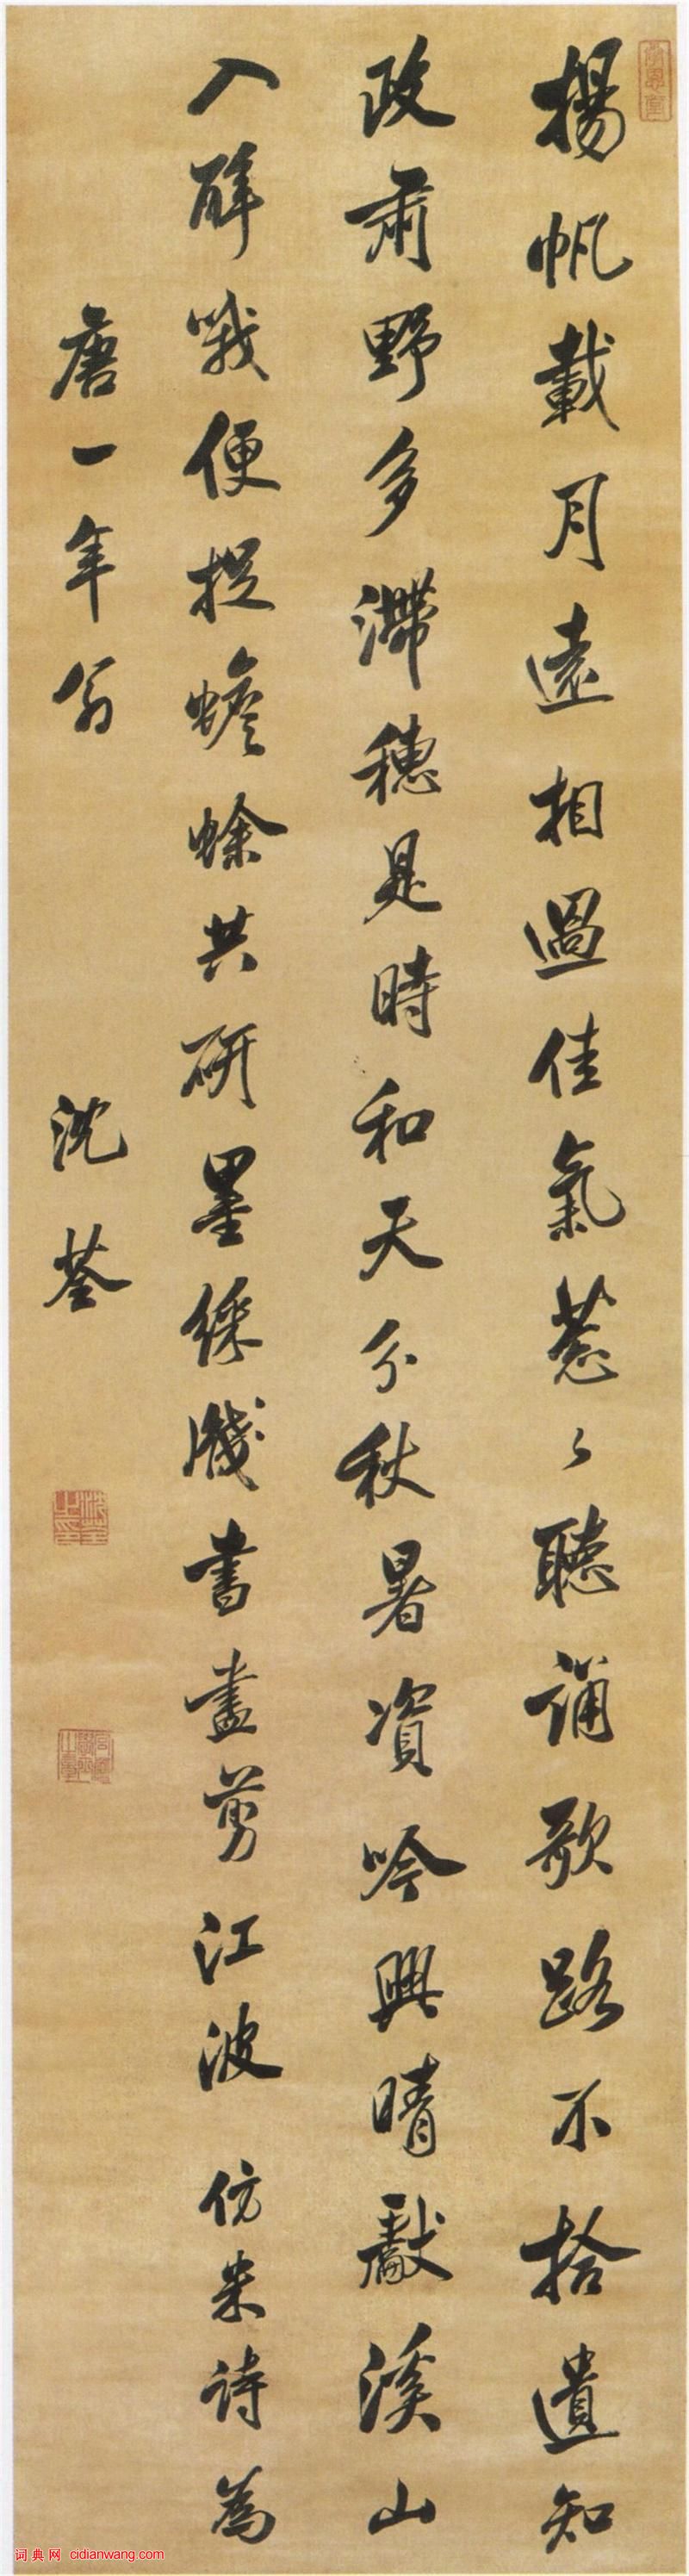 揚帆載月遠相過佳氣蔥々聽誦歌路不拾遺知
政肅野多滯穗是時和天分秋暑資吟興晴獻溪山
入醉哦便捉蟾蜍共研墨綵牋書盡剪江波 仿米詩為
唐一年翁 沈荃
词典网 cidianwang.com